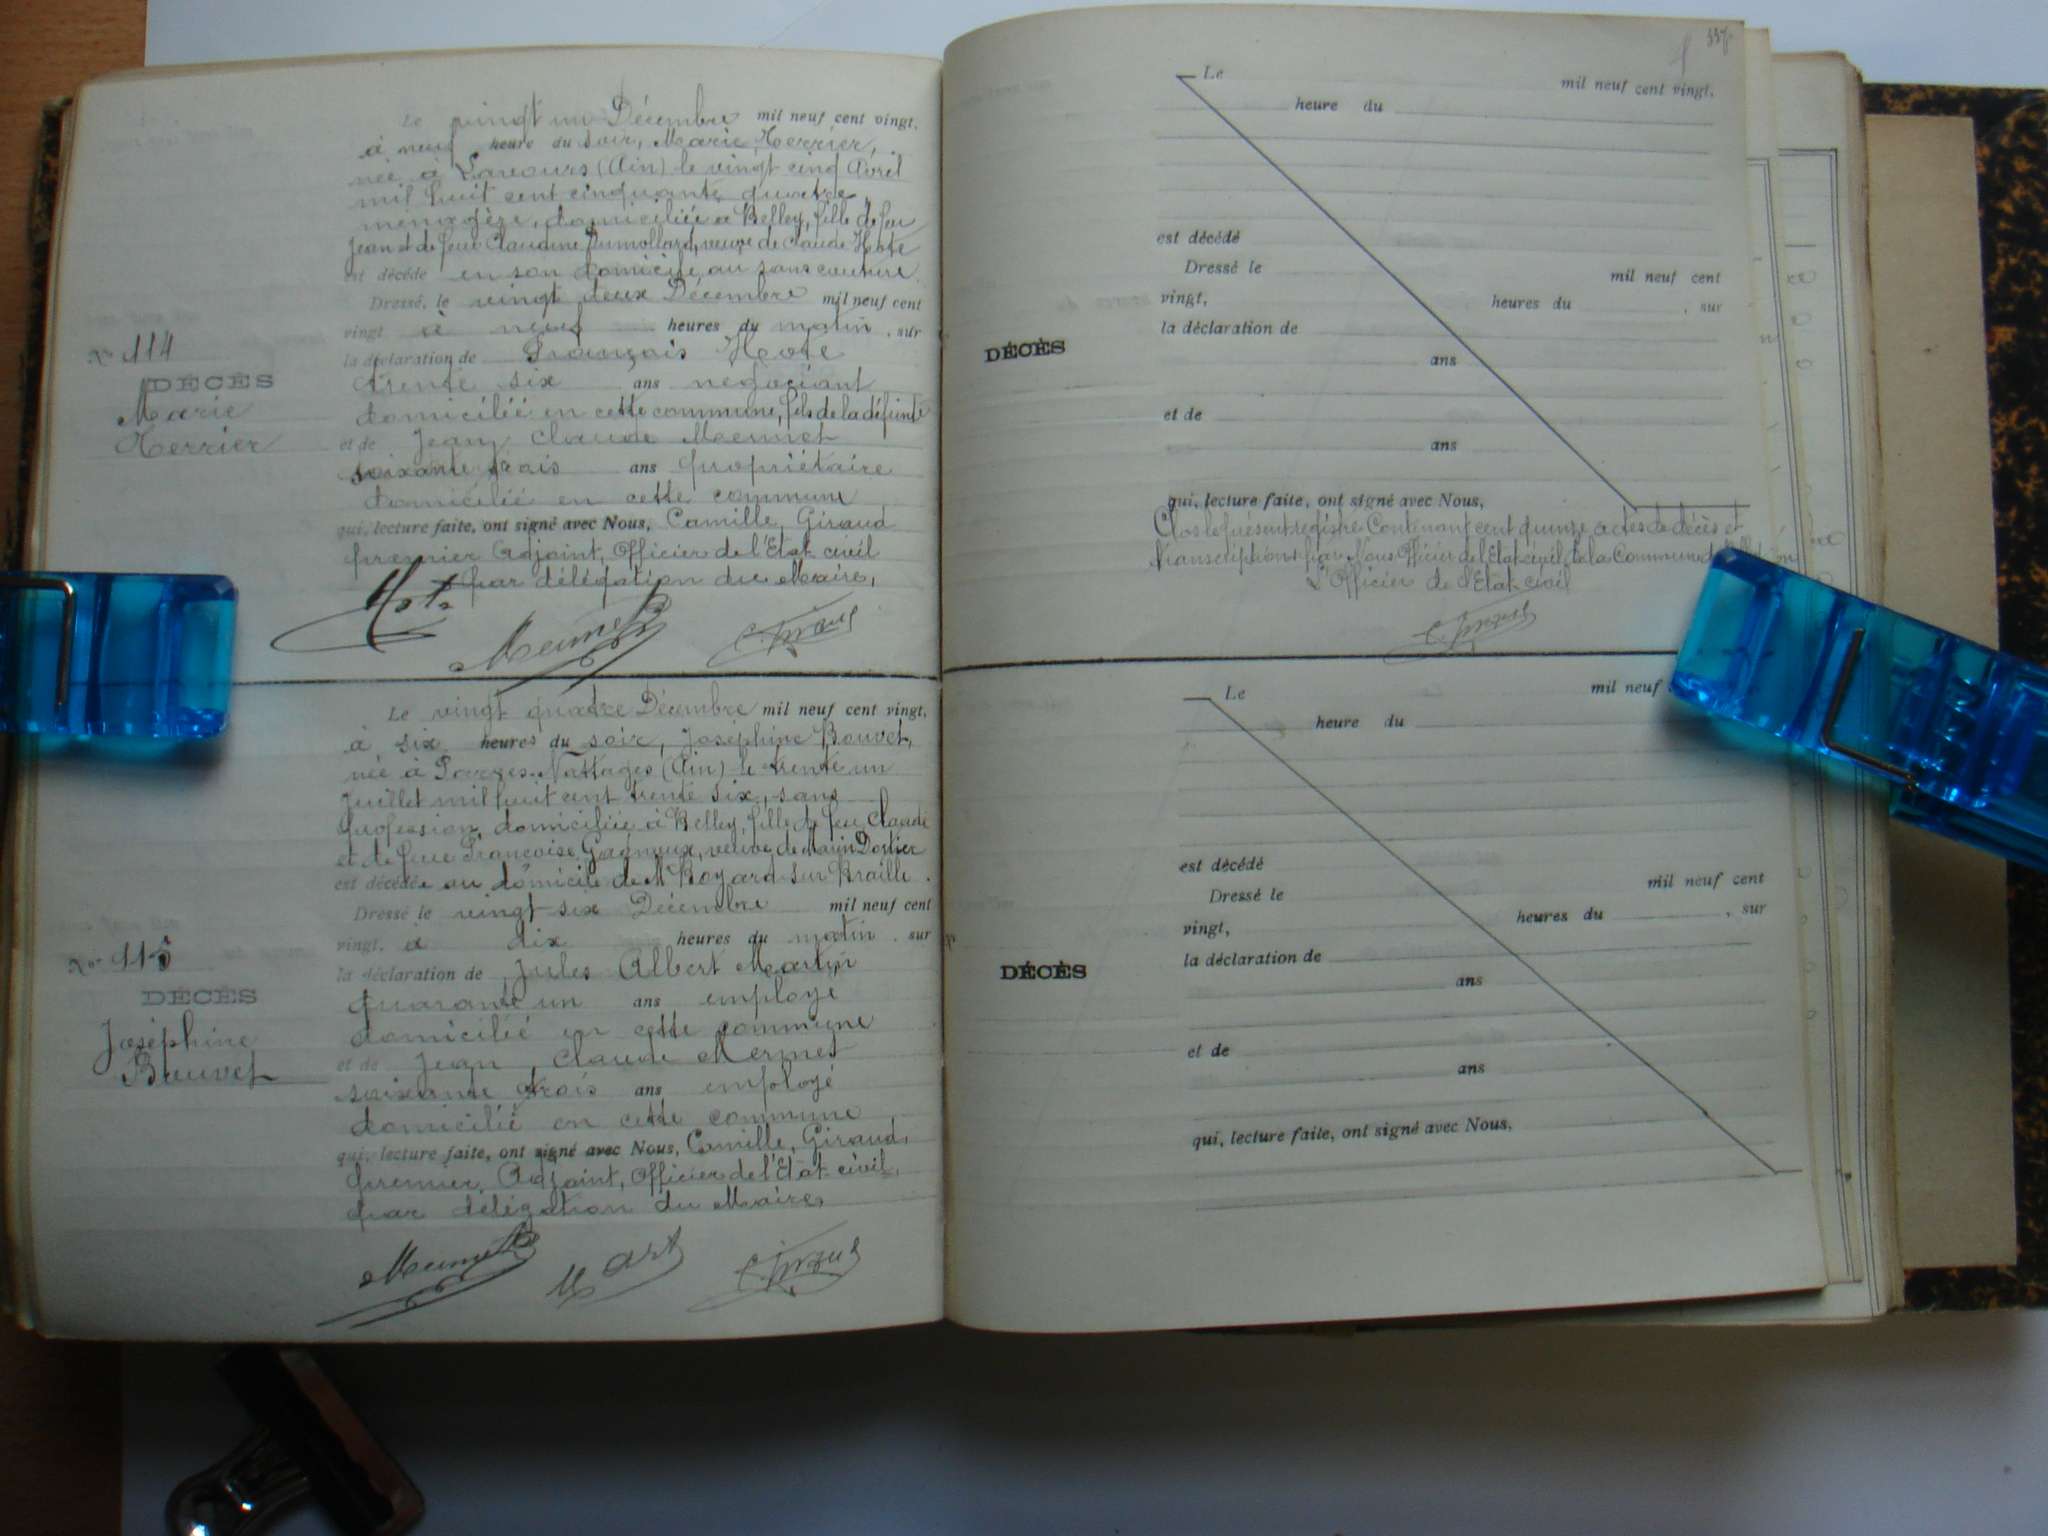 Le vingt un Décembre mil neuf cent vingt,
à neuf heure du soir, Marie Terrier,
née à Lavours (Ain) le vingt cinq Avril
mil huit cent cinquante quatre,
ménagère, domiciliée à Belley, fille de feu
Jean et de feue Claudine Dumollard, veuve de Claude Hote
est décédé en son domicile au
Dressé, le vingt deux Décembre mil neuf cent
vingt à neuf heures du matin, sur
N° 114
la déclaration de François Hote
DÉCÈS
trente six ans négociant
Marie
domiciliée en cette commune, fils de la défunte
Terrier
et de Jean Claude Mermet
soixante trois ans propriétaire
domicilié en cette commune
qui, lecture faite, ont signé avec Nous, Camille, Giraud
premier Adjoint, Officier de l'Etat civil
par délégation du Maire,
Hote
Mermet
C. Giraud
Le vingt quatre Décembre mil neuf cent vingt,
à six heures du soir, Joséphine Bouvet,
née à Parves-Nattages (Ain) le trente un
Juillet mil huit cent trente six, sans
profession, domiciliée à Belley, fille de feu Claude
et de feue Françoise Gagneux, veuve de
est décédée au domicile de M Boyard sur Braille.
Dressé le vingt six Décembre mil neuf cent
vingt, à dix heures du matin, sur
N° 115
la déclaration de Jules Albert Martin
DÉCÈS
quarante un ans employé
Joséphine
domicilié en cette commune
Bouvet
et de Jean Claude Mermet
soixante trois ans employé
domicilié en cette commune
qui, lecture faite, ont signé avec Nous, Camille, Giraud,
premier Adjoint, Officier de l'Etat civil,
par délégation du Maire,
Mermet
C. Giraud
Le mil neuf cent vingt,
heure du
est décédé
Dressé le mil neuf cent
vingt, heures du , sur
la déclaration de
DÉCÈS
ans
et de
ans
qui, lecture faite, ont signé avec Nous,
Clos le présent registre Contenant cent quinze actes de décès et
transcriptions par Nous Officier de l'Etat civil de la Commune
L'Officier de l'Etat civil
C. Giraud
Le mil neuf
heure du
est décédé
Dressé le mil neuf cent
vingt, heures du , sur
la déclaration de
DÉCÈS
ans
et de
ans
qui, lecture faite, ont signé avec Nous,